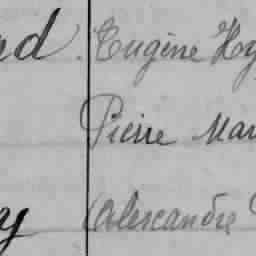 Eugène Hy
Pierre Mar
Alexandre